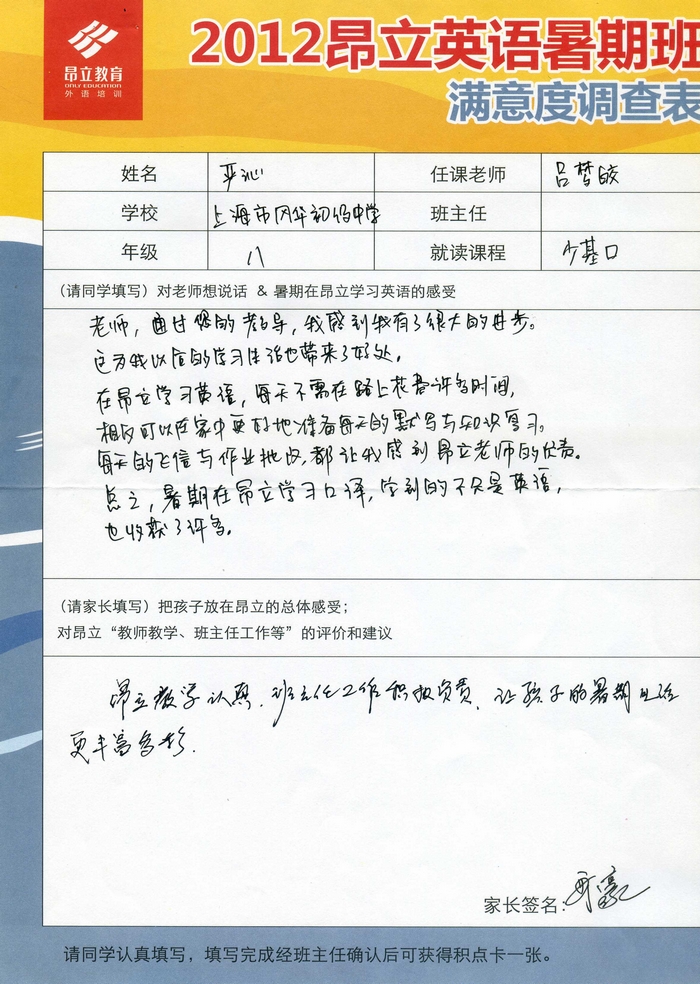 昂立教育
ONLY EDUCATION
外语培训
2012昂立英语暑期班
满意度调查表
姓名 严沁 任课老师 吕梦皎
学校 上海市风华初级中学 班主任
年级 八 就读课程 少基口
(请同学填写)对老师想说话 & 暑期在昂立学习英语的感受
老师,通过您的教导,我感到我有了很大的进步。
这为我以后的学习生活也带来了好处。
在昂立学习英语,每天不需在路上花费许多时间,
相反可以在家中更好地准备每天的默写与知识复习。
每天的飞信与作业批改,都让我感到昂立老师的负责。
总之,暑期在昂立学习口译,学到的不只是英语,
也收获了许多。
(请家长填写)把孩子放在昂立的总体感受;
对昂立“教师教学、班主任工作等”的评价和建议
昂立教学认真,班主任工作积极负责,让孩子的暑期生活
更丰富多彩.
家长签名:
请同学认真填写,填写完成经班主任确认后可获得积点卡一张。